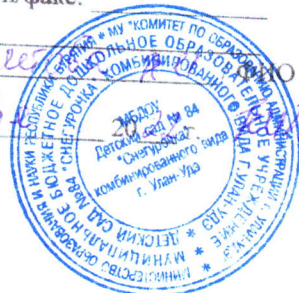 факс.
ФИО
20
МИНИСТЕРСТВО ОБРАЗОВАНИЯ И НАУКИ РЕСПУБЛИКИ БУРЯТИЯ * МУ "КОМИТЕТ ПО ОБРАЗОВАНИЮ АДМИНИСТРАЦИИ Г. УЛАН-УДЭ" *
МУНИЦИПАЛЬНОЕ БЮДЖЕТНОЕ ДОШКОЛЬНОЕ ОБРАЗОВАТЕЛЬНОЕ УЧРЕЖДЕНИЕ *
ДЕТСКИЙ САД №84 "СНЕГУРОЧКА" КОМБИНИРОВАННОГО ВИДА Г. УЛАН-УДЭ *
МБДОУ
Детский сад № 84
"Снегурочка"
комбинированного вида
г. Улан-Удэ